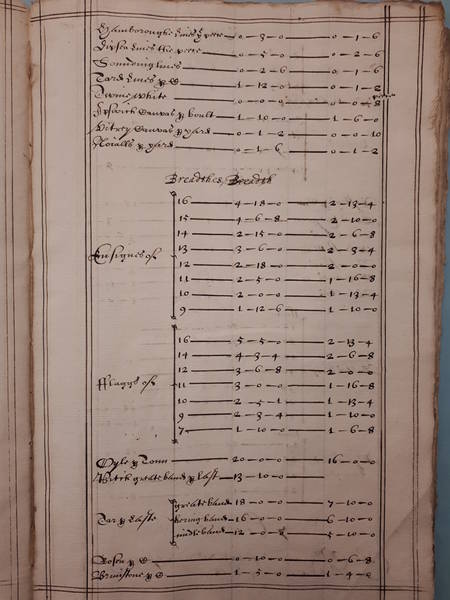 Hamboroughe lines ꝑ peece 0-3-0 0-1-6
Dipsea lines the peece 0-5-0 0-2-6
Soundinglines 0-2-6 0-1-6
Tard lines ꝑ C 1-12-0 0-1-2
Twine white 0-0-9 0-0-8
Ipswich Canvas ꝑ boult 1-10-0 1-6-0
Vitrey Canvas ꝑ yard 0-1-2 0-0-10
Noialls ꝑ yard 0-1-6 0-1-2
Breadthes, Breadth
Ensignes of
16 4-18-0 2-13-4
15 4-6-8 2-10-0
14 2-15-0 2-6-8
13 3-6-0 2-3-4
12 2-18-0 2-0-0
11 2-5-0 1-16-8
10 2-0-0 1-13-4
9 1-12-6 1-10-0
Flaggs of
16 5-5-0 2-13-4
14 4-3-4 2-6-8
12 3-6-8 2-0-0
11 3-0-0 1-16-8
10 2-5-1 1-13-4
9 2-3-4 1-10-0
7 1-10-0 1-6-8
Oyle ꝑ Tonn 20-0-0 16-0-0
Pitch greate band ꝑ last 13-10-0
Tar ꝑ Laste
greate band 18-0-0 7-10-0
hering band 16-0-0 6-10-0
midle band 12-0-0 5-10-0
Rosen ꝑ C 0-10-0 0-6-8
Brimstone ꝑ C 1-5-0 1-4-0